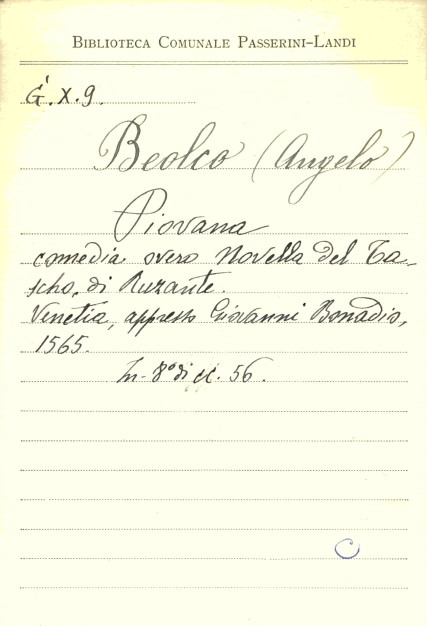 BIBLIOTECA COMUNALE PASSERINI-LANDI
G̓.X.9.
Beolco (Angelo)
Piovana
comedia overo Novella del Ta-
scho, di Ruzante.
Venetia, appresso Giovanni Bonadio,
1565.
In-8º di cc. 56.
C